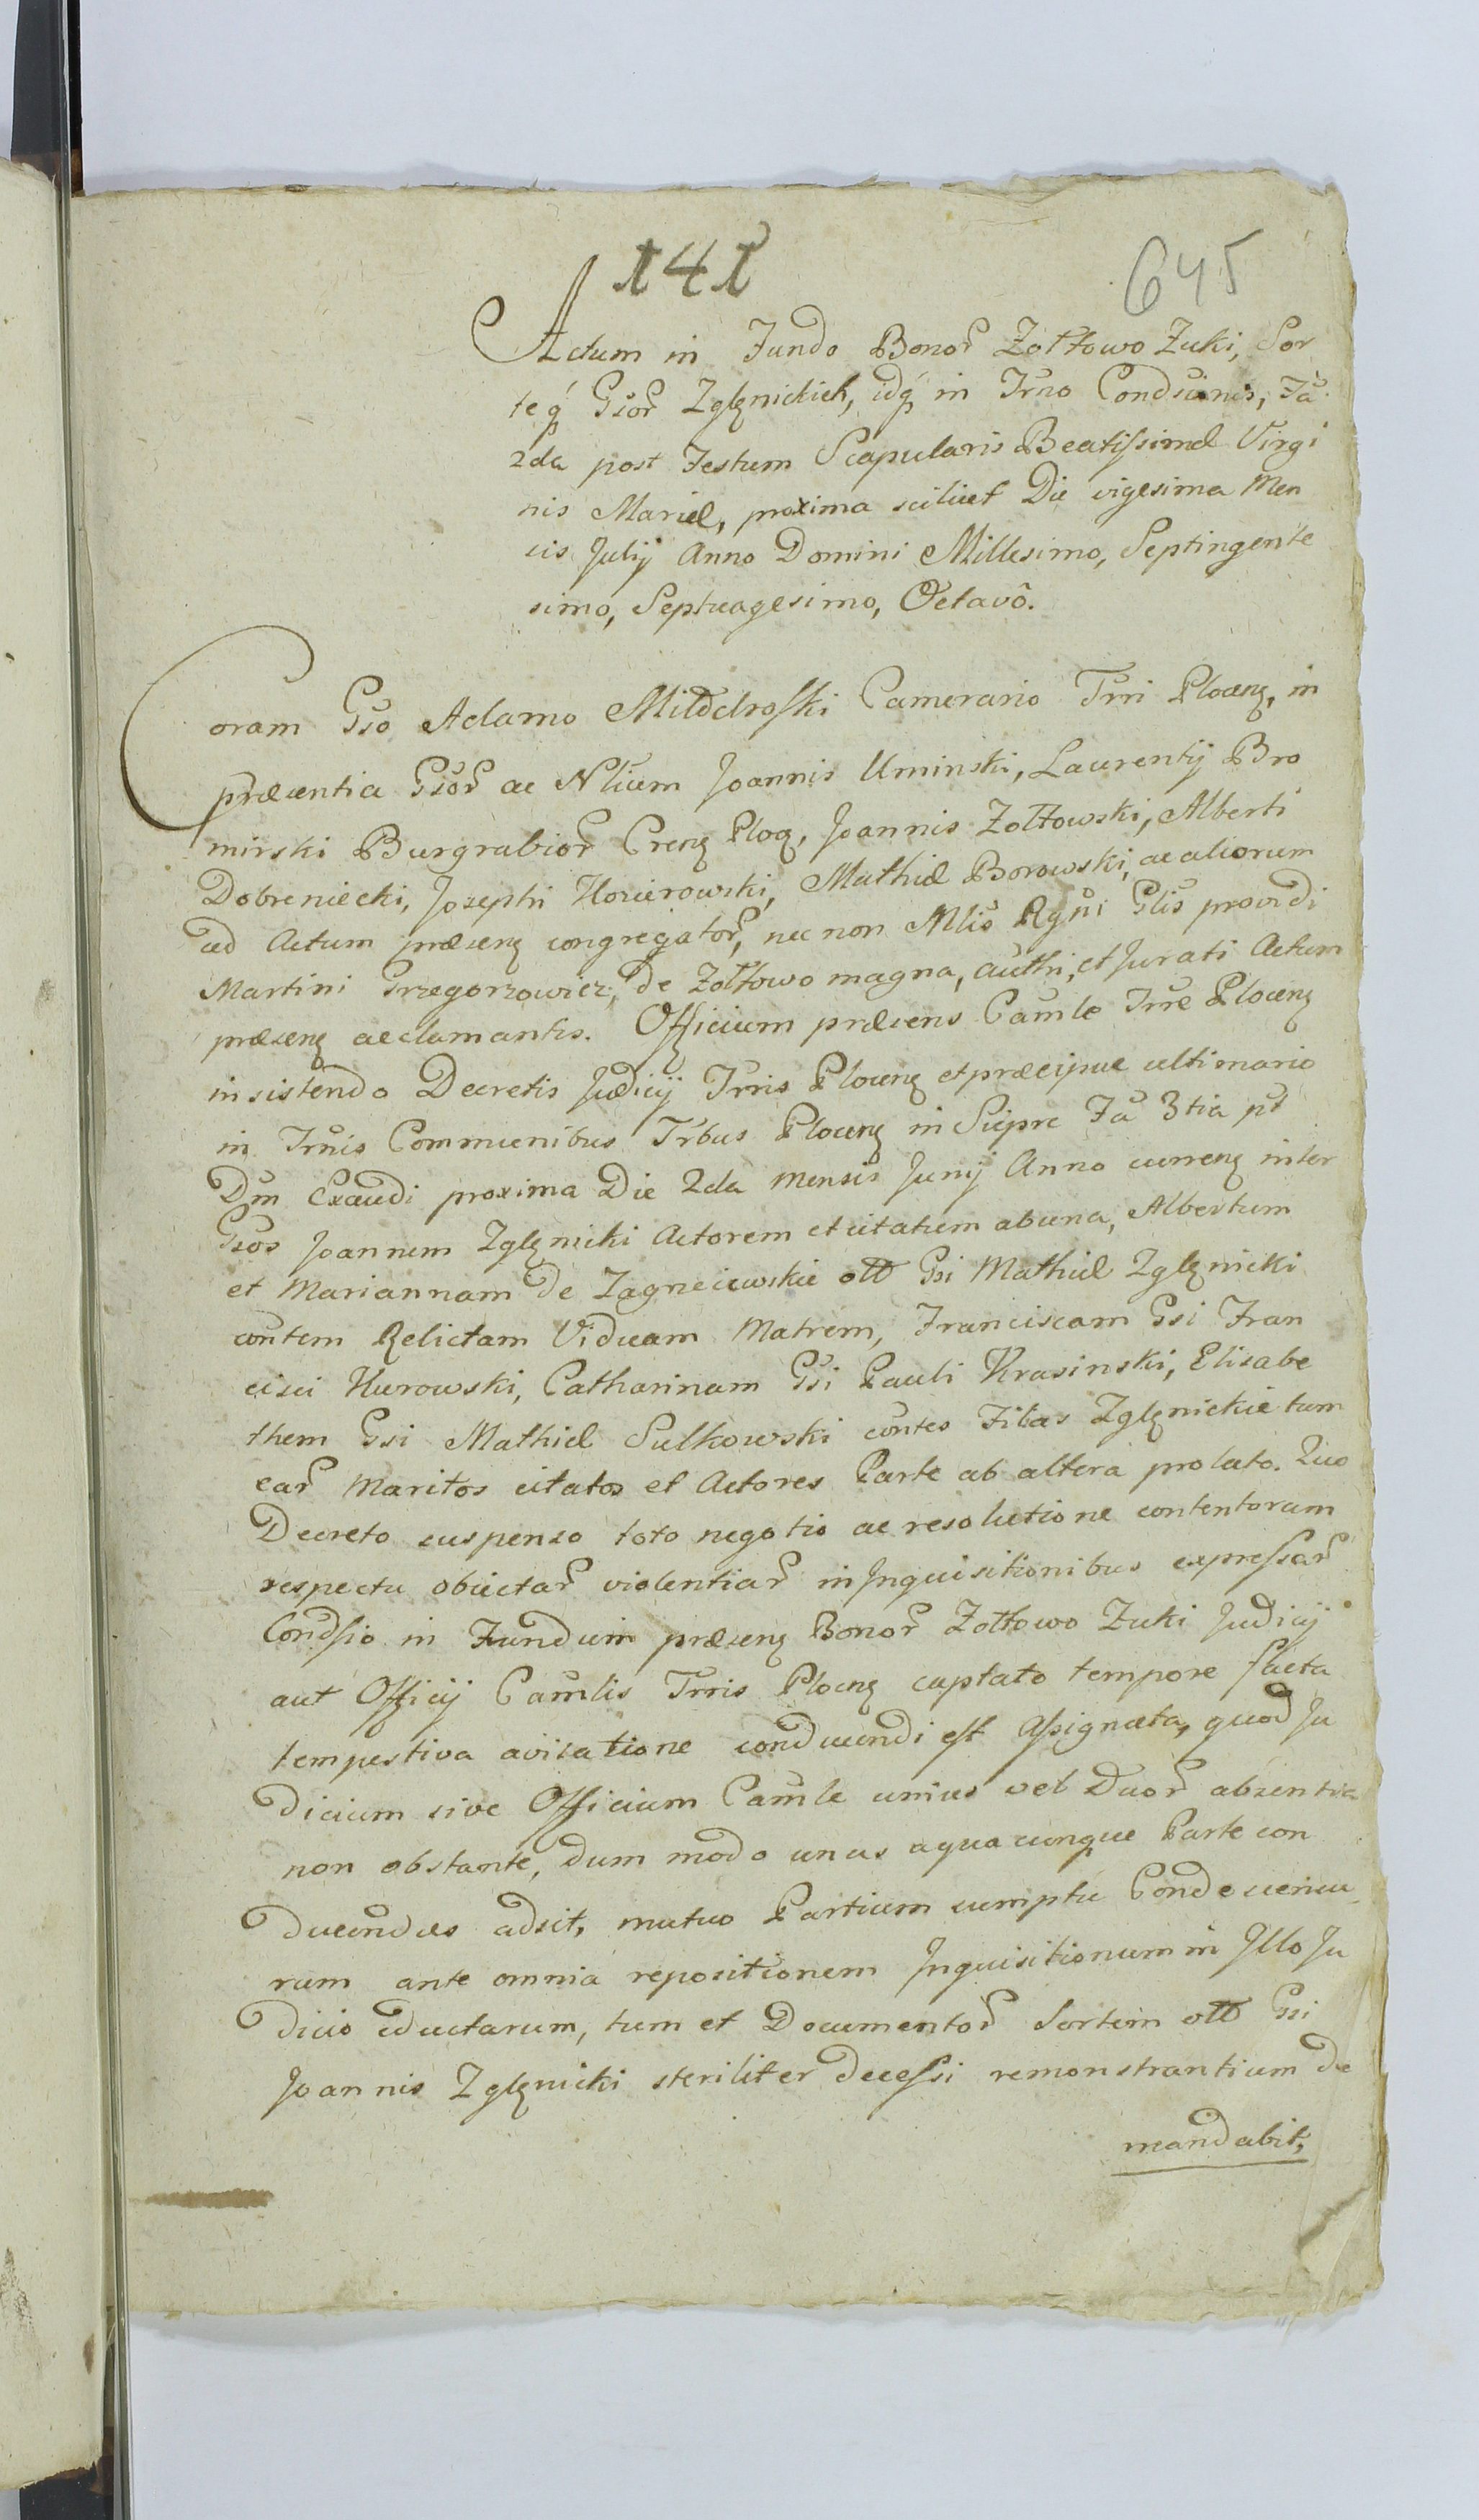 141
645
Actum in Fundo Bonor Żołtowo Żuki, Sor
teq́ Gsor Zglęnickich, idq́ in Trno Condscinis, Fa
2da post Festum Scapularis Beatissimæ Virgi
nis Mariæ, proxima scilicet Die vigesima Men
sis Julij Anno Domini Millesimo, Septingente
simo, Septuagesimo, Octavô.
Coram Gso Adamo Camerario Trri Plocenȝ, in
præsentia Gsor ac Nlium Joannis Uminski, Laurentij Bro
mirski Burgrabior Crenȝ Ploc, Joannis Żołtowski, Alberti
Dobreniecki, Josephi, Mathiæ Borowski, ac aliorum
ad Actum præsenȝ congregator, nec non Mlis Rgni Glis providi
Martini Grzegorzowicz, de Żołtowo magna, authi, et Jurati Actum
præsenȝ acclamantis. Officium præsens Camle Trræ Plocenȝ
insistendo Decretis Judicij Trris Plocenȝ et præcipue ultimario
in Trnis Communibus Trbus Plocenȝ in Siepre Fa 3tia pt
Dm Exaudi proxima Die 2da Mensis Junij Anno currenȝ inter
Gsos Joannem Zglęnicki Actorem et citatum ab una, Albertum
et Mariannam de olb Gsi Mathiæ Zglęnicki
contem Relictam Viduam Matrem, Franciscam Gsi Fran
cisci Kurowski, Catharinam Gsi Pauli Krasinski, Elisabe
them Gsi Mathiæ Sulkowski contes Filias Zglęnickie tum
ear Maritos citatos et Actores Parte ab altera prolato. Quo
Decreto suspenso toto negotio ac resolutione contentorum
respectu obiectar violentiar in Inquisitionibus expressar
Condsio in Fundum præsenȝ Bonor Żołtowo Żuki Judicij
aut Officij Camlis Trris Plocnȝ captato tempore facta
tempestiva avisatione conducendi est Assignata, quod Ju
dicium sive Officium Camle unius vel Duor absentia
non obstante, dum modo unus a quacunque Parte con
ducendus adsit, mutuo Partium sumptu Condescensu
rum ante omnia repositionem Inquisitionum in Illo Ju
dicio eductarum, tum et Documentor Sortem olb Gsi
Joannis Zglęnicki steriliter decessi remonstrantium de
mandabit,